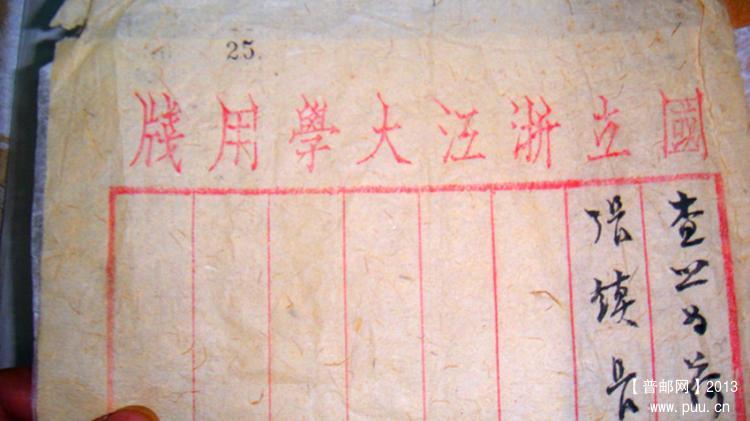 25.
國立浙江大學用牋
查照为荷
張鎮長
【普邮网】2013
www.puu.cn